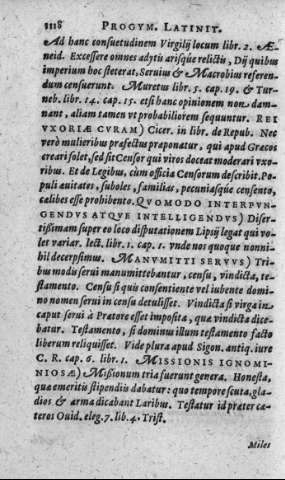 1118 PROGYM. LATINIT.
Ad hanc consuetudinem Virgilij locum libr. 2. Æ-
neid. Excessere omnes adytis arisque relictis, Dij quibus
imperium hoc steterat, Seruius & Macrobius referen-
dum censuerunt. Muretus libr. 5. cap. 19. & Tur-
neb. libr. 14. cap. 15. etsi hanc opinionem non dam-
nant, aliam tamen vt probabiliorem sequuntur. REI
VXORIÆ CVRAM) Cicer. in libr. de Repub. Nec
verò mulieribus præfectus præponatur. qui apud Græcos
creari solet, sed sit Censor qui viros doceat moderari vxo-
ribus. Et de Legibus, cùm officia Censorum describit. Po-
puli æuitates, suboles, familias, pecuniasque censento,
cælibes esse prohibento. QVOMODO INTERPVN-
GENDVS ATQVE INTELLIGENDVS) Diser-
tissimam super eo loco disputationem Lipsij legat qui vo-
let variar. lect. libr. 1. cap. 1. vnde nos quoque nonni-
hil decerpsimus. MANVMITTI SERVVS) Tri-
bus modis serui manumittebantur, censu, vindicta, te-
stamento. Censu si quis consentiente vel iubente domi-
no nomen serui in censu detulisset. Vindicta si virga in
caput serui à Prætore esset imposita, quæ vindicta dice-
batur. Testamento, si dominus illum testamento facto
liberum reliquisset. Vide plura apud Sigon. antiq. iure
C. R. cap. 6. libr. 1. MISSIONIS IGNOMI-
NIOSÆ) Missionum tria fuerunt genera. Honesta,
quæ emeritis stipendiis dabatur: quo tempore scuta, gla-
dios & arma dicabant Laribus. Testatur id præter cæ-
teros Ouid. eleg. 7. lib. 4. Trist.
Miles